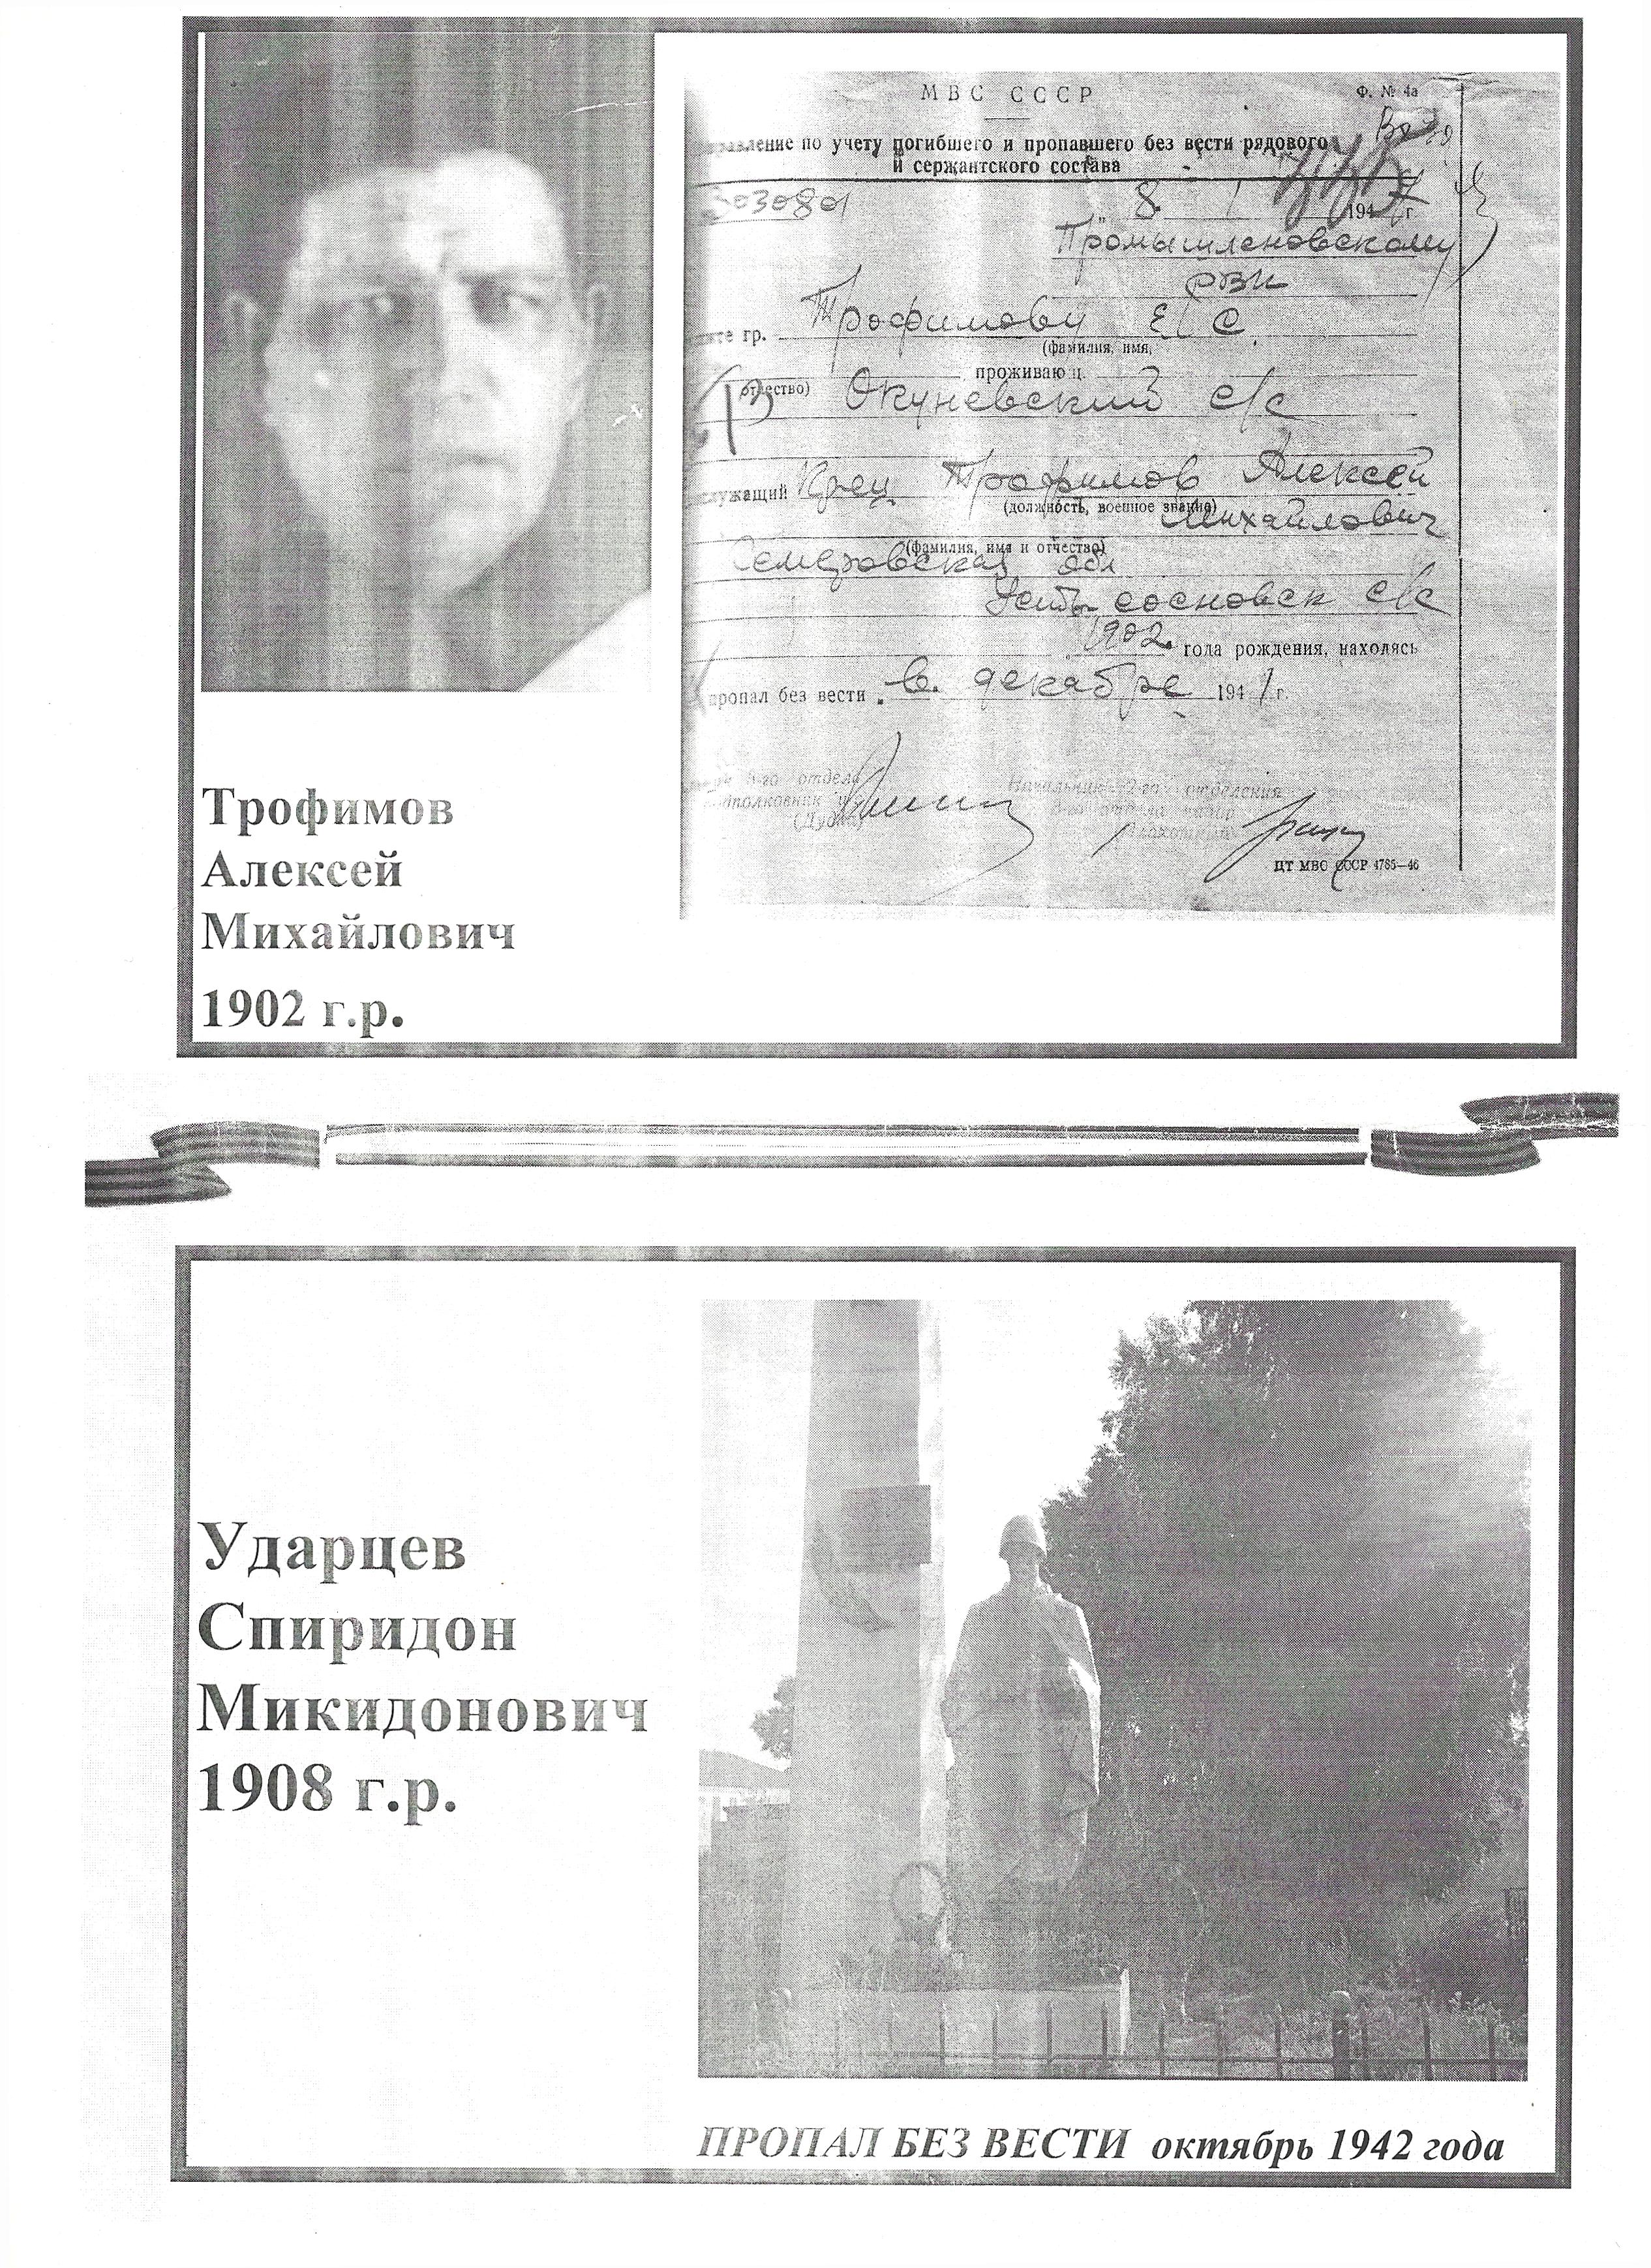 МВС СССР
Ф. № 4а
по учету погибшего и пропавшего без вести рядового
и сержантского состава
„ 8. 194 г.
Промышленовскому
РВК
гр. Трофимовой Е С
(фамилия, имя,
отчество) проживающ.
Окуневский с/с
Кр-ец Трофимов Алексей
(должность, военное звание)
Михайлович
(фамилия, имя и отчество)
Кемеровская обл
Усть-сосновск с/с
1902 года рождения, находясь
пропал без вести в. декабре 1941 г.
отдела
подполковник
Начальник 2-го отделения
ЦТ МВС СССР 4785—46
Трофимов
Алексей
Михайлович
1902 г.р.
Ударцев
Спиридон
Микидонович
1908 г.р.
ПРОПАЛ БЕЗ ВЕСТИ октябрь 1942 года